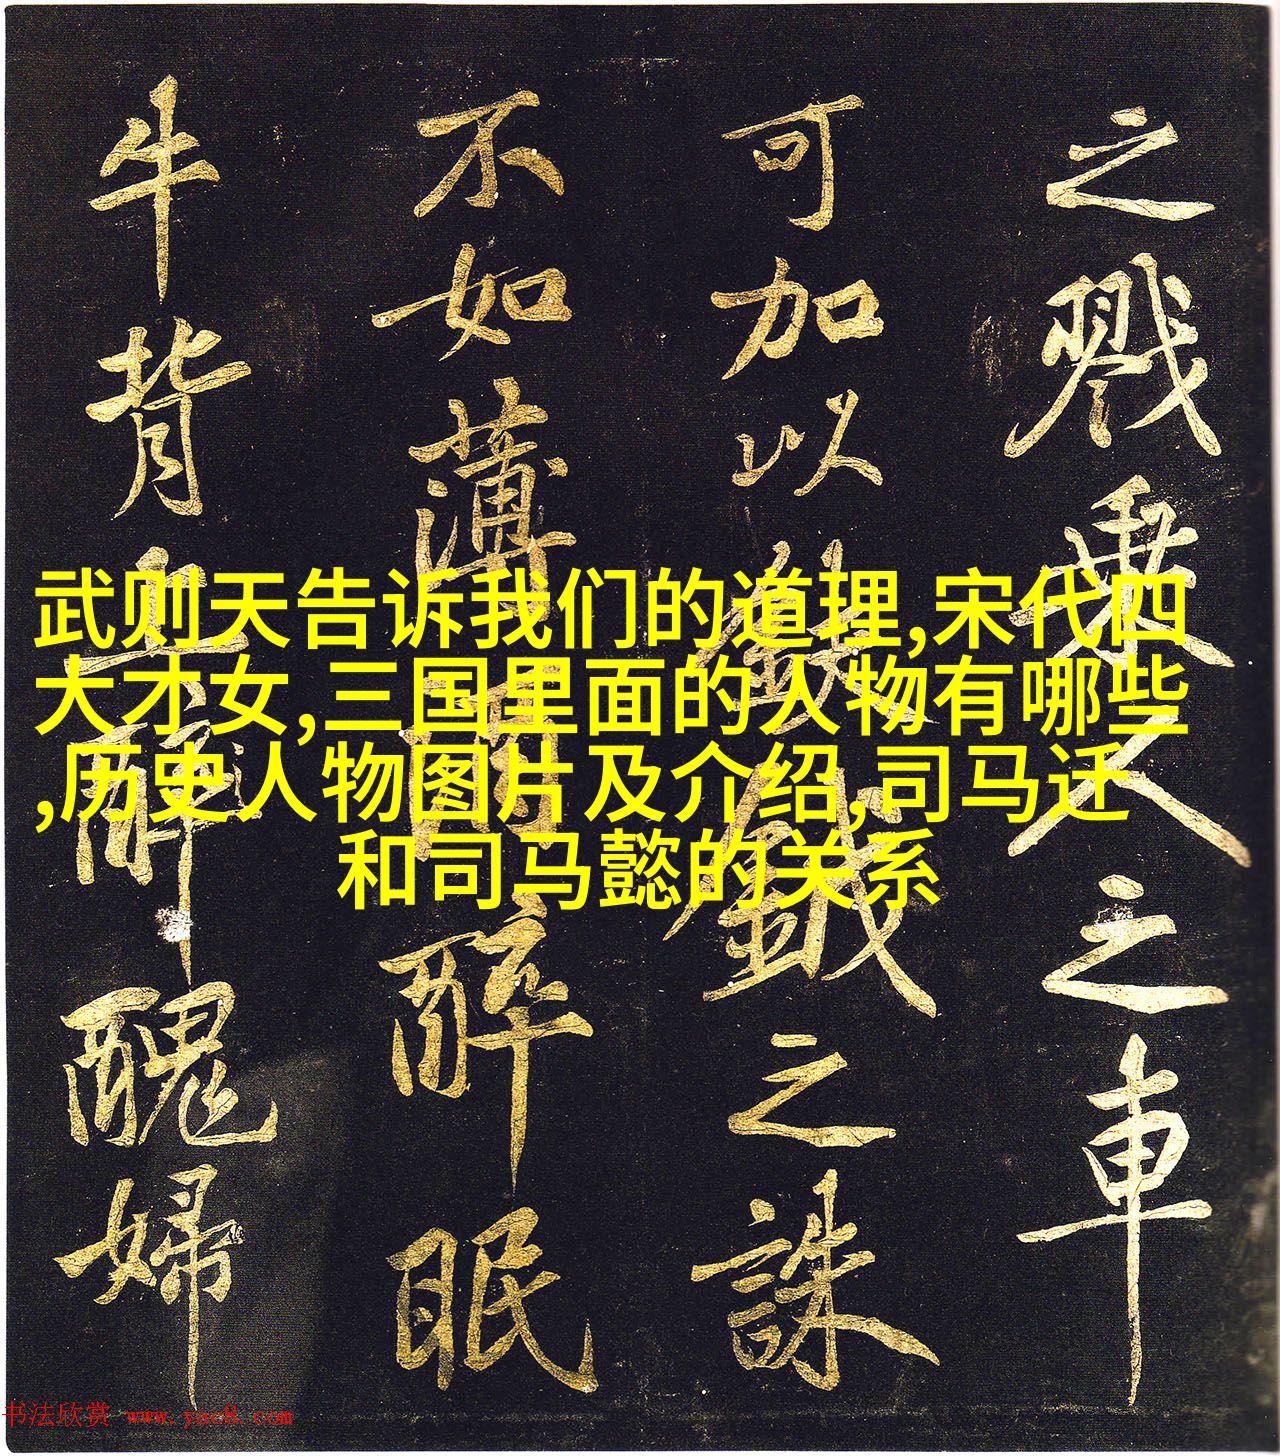 之戮乘人之車
可加以鈇鉞之誅
不如薄酒醉眠
牛背上醜婦
武则天告诉我们的道理,宋代四
大才女,三国里面的人物有哪些
,历史人物图片及介绍,司马迁
和司马懿的关系
书法欣赏 www.yac8.com